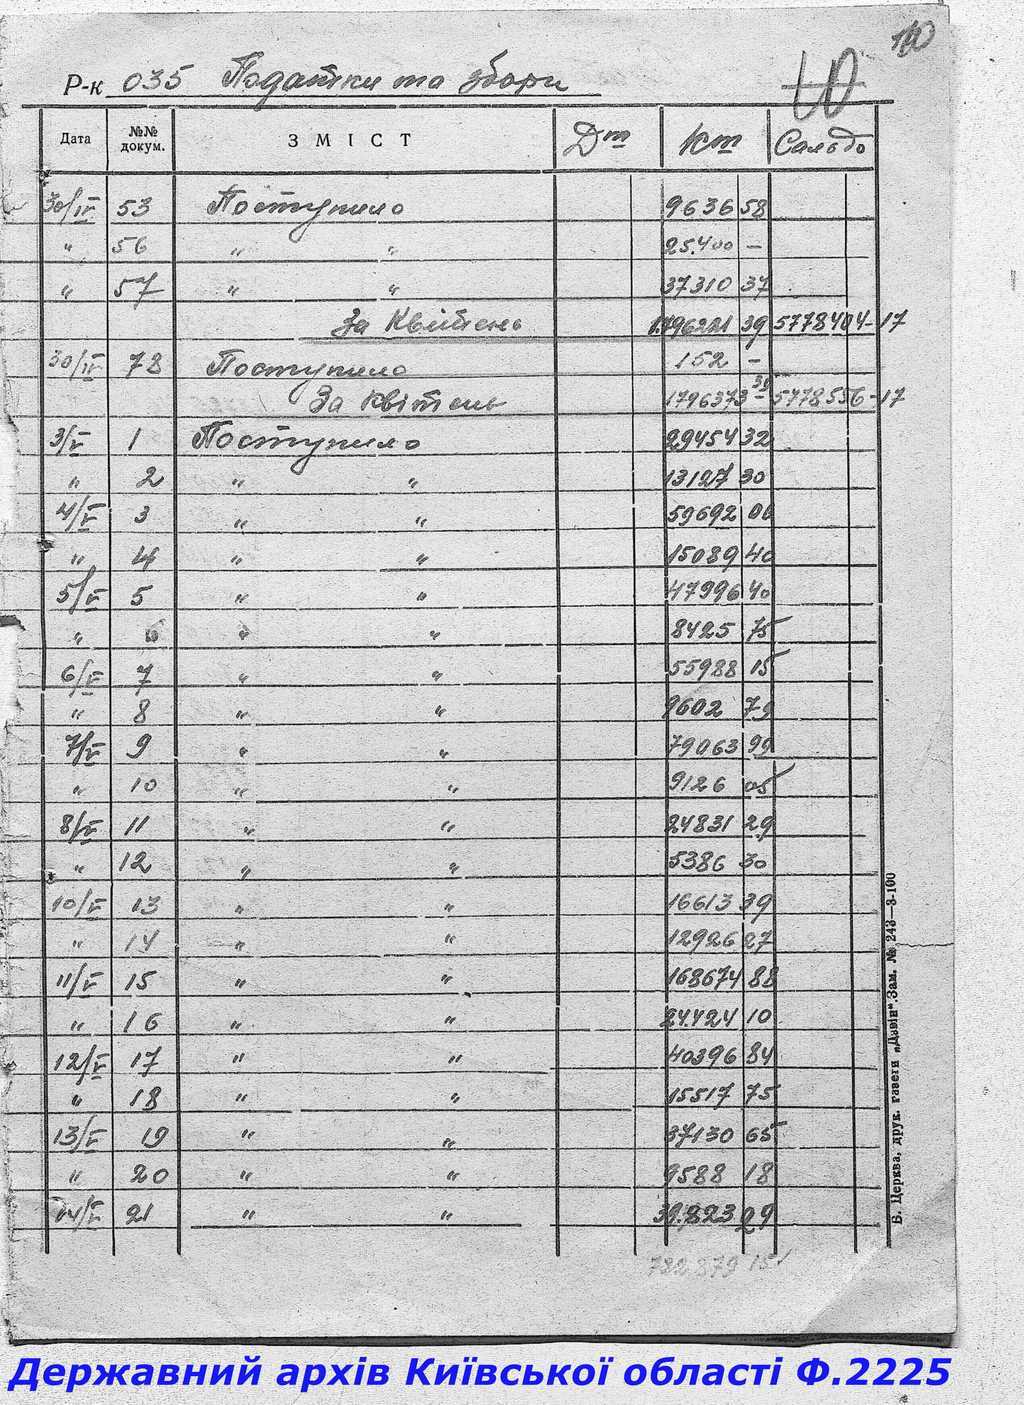 10
Р-к 035 Податки та збори
Дата №№ докум. ЗМІСТ Дт Кт Сальдо
30/IV 53 Поступило 9636 58
" 56 " " 25.400 —
" 57 " " 37310 37
За Квітень 1.796221 39 5778404-17
30/IV 78 Поступило 152 —
За Квітень 1796373 39 5778556-17
3/V 1 Поступило 29454 32
" 2 " " 13127 30
4/V 3 " " 59692 00
" 4 " " 15089 40
5/V 5 " " 47996 40
" 6 " " 8425 75
6/V 7 " " 55988 15
" 8 " " 9602 79
7/V 9 " " 79063 99
" 10 " " 9126 05
8/V 11 " " 24831 29
" 12 " " 5386 30
10/V 13 " " 16613 39
" 14 " " 12926 27
11/V 15 " " 168674 88
" 16 " " 24.424 10
12/V 17 " " 40396 84
" 18 " " 15517 75
13/V 19 " " 37130 65
" 20 " " 9588 18
14/V 21 " " 39.823 29
722 879 15
Б. Церква, друк. газети „Дзвін". Зам. № 243—3-100
Державний архів Київської області Ф.2225